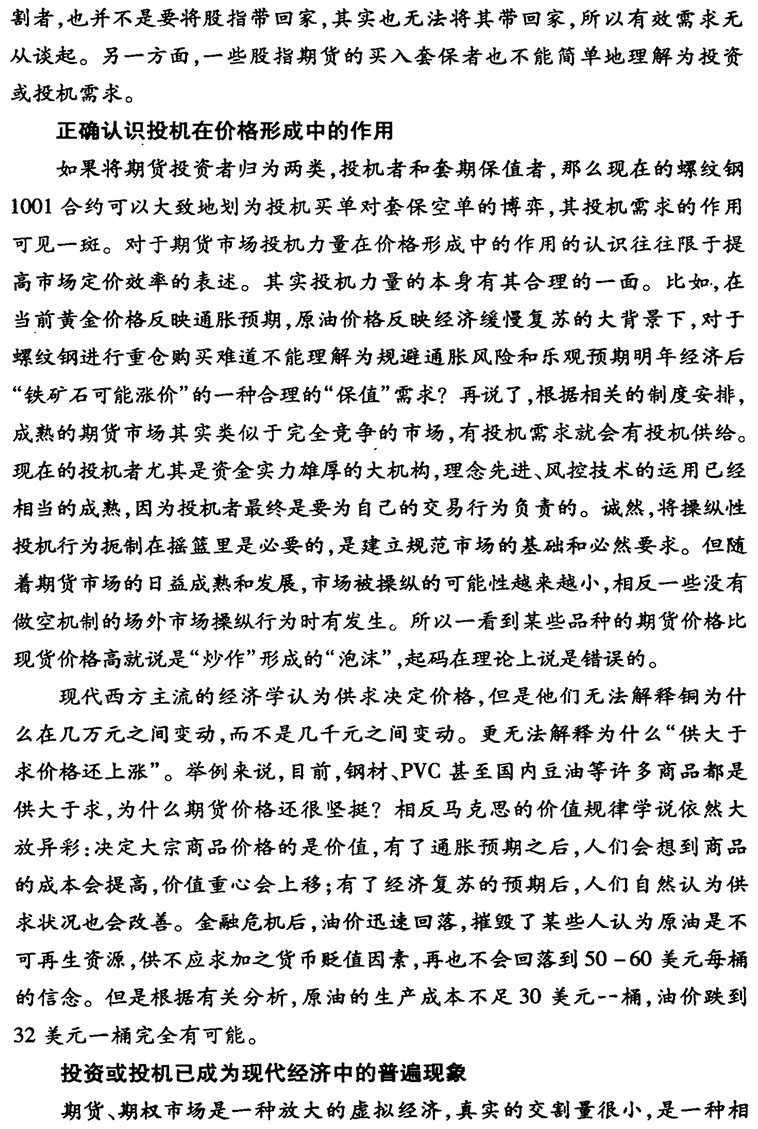 割者,也并不是要将股指带回家,其实也无法将其带回家,所以有效需求无
从谈起。另一方面,一些股指期货的买入套保者也不能简单地理解为投资
或投机需求。
正确认识投机在价格形成中的作用
如果将期货投资者归为两类,投机者和套期保值者,那么现在的螺纹钢
1001 合约可以大致地划为投机买单对套保空单的博弈,其投机需求的作用
可见一斑。对于期货市场投机力量在价格形成中的作用的认识往往限于提
高市场定价效率的表述。其实投机力量的本身有其合理的一面。比如,在
当前黄金价格反映通胀预期,原油价格反映经济缓慢复苏的大背景下,对于
螺纹钢进行重仓购买难道不能理解为规避通胀风险和乐观预期明年经济后
“铁矿石可能涨价”的一种合理的“保值”需求? 再说了,根据相关的制度安排,
成熟的期货市场其实类似于完全竞争的市场,有投机需求就会有投机供给。
现在的投机者尤其是资金实力雄厚的大机构,理念先进、风控技术的运用已经
相当的成熟,因为投机者最终是要为自己的交易行为负责的。诚然,将操纵性
投机行为扼制在摇篮里是必要的,是建立规范市场的基础和必然要求。但随
着期货市场的日益成熟和发展,市场被操纵的可能性越来越小,相反一些没有
做空机制的场外市场操纵行为时有发生。所以一看到某些品种的期货价格比
现货价格高就说是“炒作”形成的“泡沫”,起码在理论上说是错误的。
现代西方主流的经济学认为供求决定价格,但是他们无法解释铜为什
么在几万元之间变动,而不是几千元之间变动。更无法解释为什么“供大于
求价格还上涨”。举例来说,目前,钢材、PVC 甚至国内豆油等许多商品都是
供大于求,为什么期货价格还很坚挺? 相反马克思的价值规律学说依然大
放异彩:决定大宗商品价格的是价值,有了通胀预期之后,人们会想到商品
的成本会提高,价值重心会上移;有了经济复苏的预期后,人们自然认为供
求状况也会改善。金融危机后,油价迅速回落,摧毁了某些人认为原油是不
可再生资源,供不应求加之货币贬值因素,再也不会回落到 50 - 60 美元每桶
的信念。但是根据有关分析,原油的生产成本不足 30 美元--桶,油价跌到
32 美元一桶完全有可能。
投资或投机已成为现代经济中的普遍现象
期货、期权市场是一种放大的虚拟经济,真实的交割量很小,是一种相